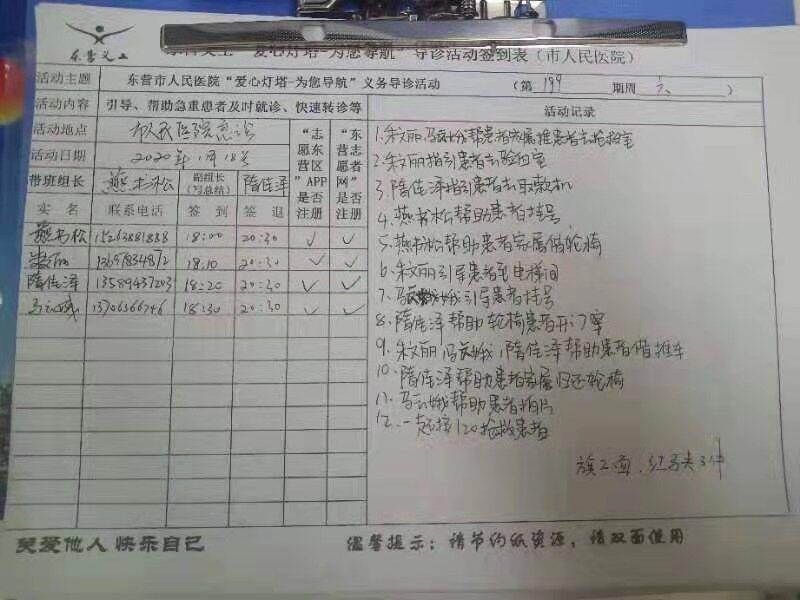 东营义工
爱心灯塔-为您导航”导诊活动签到表（市人民医院）
活动主题 东营市人民医院“爱心灯塔-为您导航”义务导诊活动 （第 199 期周 六 ）
活动内容 引导、帮助急重患者及时就诊、快速转诊等
活动地点 市人民医院急诊
活动日期 2020年1月18号
带班组长 燕书松 副组长（写总结） 隋佳泽
“志愿东营区”APP是否注册
“东营志愿者网”是否注册
实名 联系电话 签到 签退
燕书松 15263881888 18:00 20:30 ✓ ✓
朱文丽 13697834872 18:10 20:30 ✓ ✓
隋佳泽 13589437203 18:20 20:30 ✓ ✓
马云娥 13706366746 18:30 20:30 ✓ ✓
活动记录
1.朱文丽 马云娥帮患者家属推患者去抢救室
2.朱文丽指引患者去验血室
3.隋佳泽指引患者去取款机
4.燕书松帮助患者挂号
5.燕书松帮助患者家属借轮椅
6.朱文丽引导患者至电梯间
7.马云娥引导患者挂号
8.隋佳泽帮助轮椅患者开门
9.朱文丽 马云娥，隋佳泽帮助患者借推车
10.隋佳泽帮助患者家属归还轮椅
11.马云娥帮助患者拍片
12.一起接120抢救患者
旗2面，红马夹3件
关爱他人 快乐自己
温馨提示：请节约纸资源，请双面使用